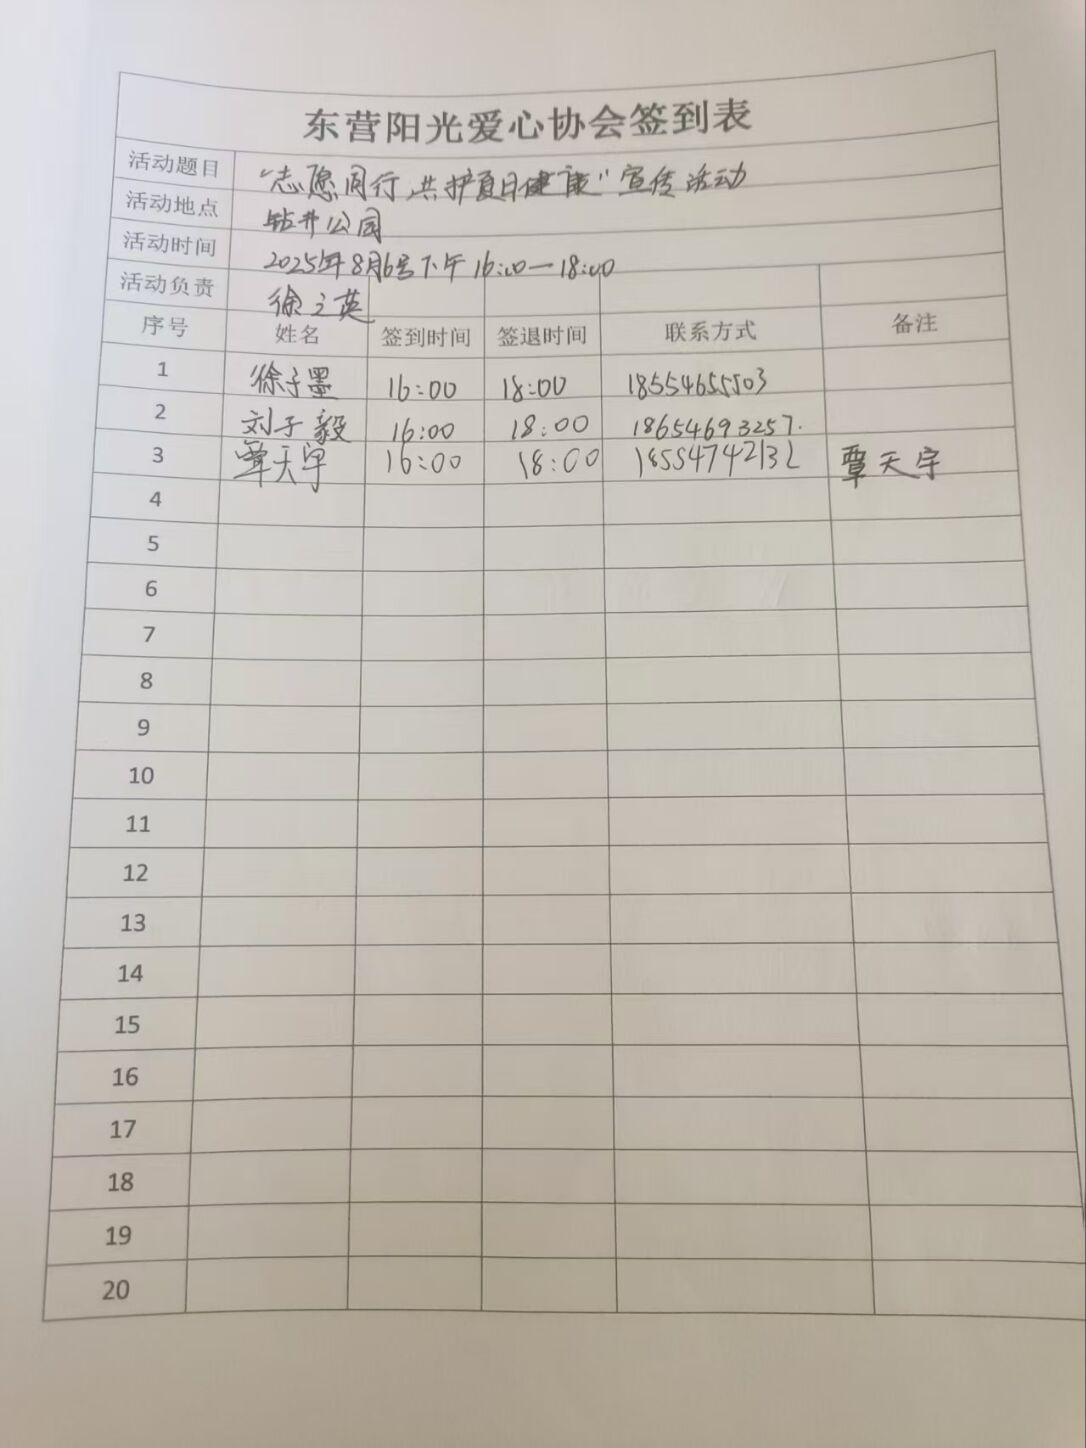 东营阳光爱心协会签到表
活动题目 “志愿同行,共护夏日健康”宣传活动
活动地点 钻井公园
活动时间 2025年8月6号下午16:00—18:00
活动负责 徐立英
序号 姓名 签到时间 签退时间 联系方式 备注
1 徐子墨 16:00 18:00 18554655503
2 刘子毅 16:00 18:00 18654693257.
3 覃天宇 16:00 18:00 18554742132 覃天宇
4
5
6
7
8
9
10
11
12
13
14
15
16
17
18
19
20